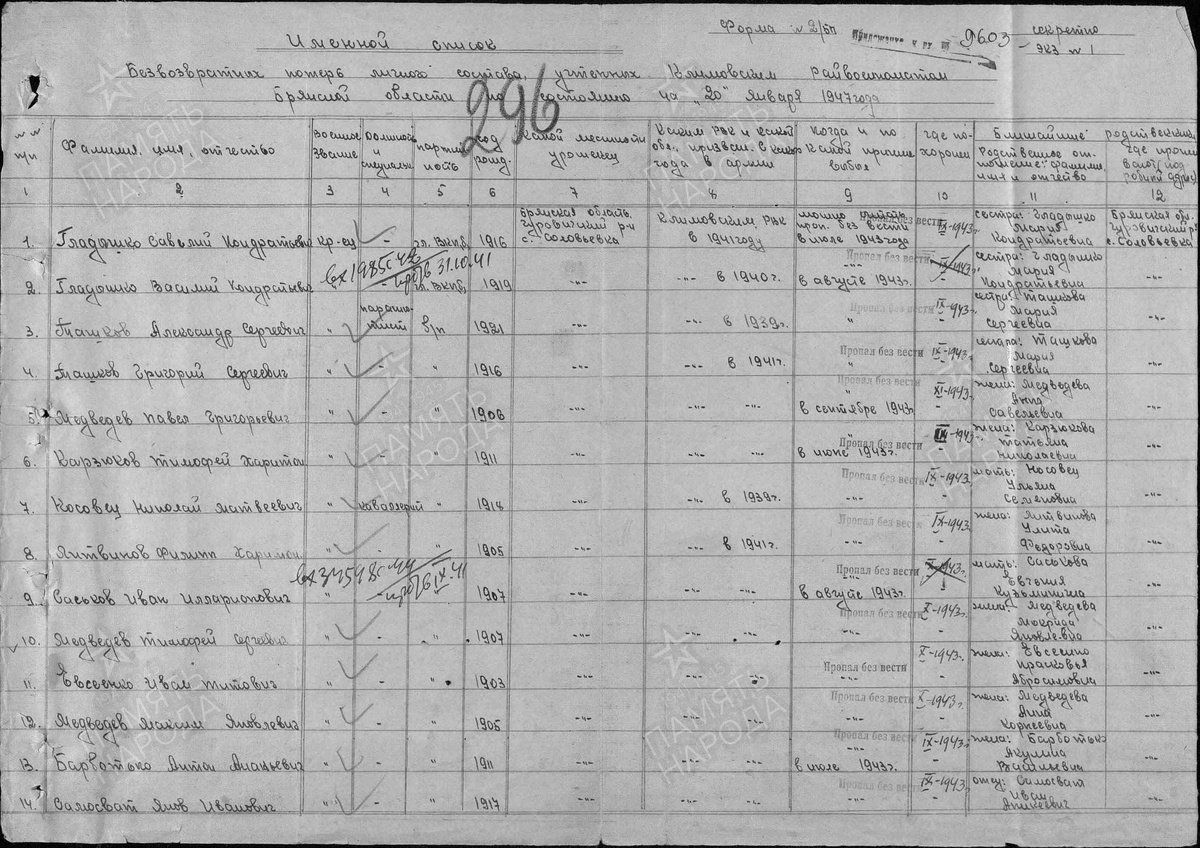 Форма № 2/БП
Приложение к вх. №
9603
секретно
экз № 1
Именной список
Безвозвратных потерь личного состава, учтенных Климовским райвоенкоматом
Брянской области по состоянию на "20" января 1947 года
296
№№ п/п
Фамилия, имя, отчество
Военное звание
Должность и специальн.
партийность
год рожд.
Какой местности уроженец
Каким РВК и какой обл. призван. С какого года в армии
Когда и по какой причине выбыл
где похоронен
Ближайшие родственники
Родственное отношение: фамилия, имя и отчество
Где прожив
1 2 3 4 5 6 7 8 9 10 11 12
1. Гладышко Савелий Кондратьевич кр-ец - чл. ВКПб 1916 Брянская область, Чуровичский р-н с. Соловьевка Климовским РВК в 1941 году можно считать проп. без вести в июле 1943 года Пропал без вести IX-1943г. сестра: Гладышко Мария Кондратьевна Брянская обл. Чуровичский р-н с. Соловьевка
вх 1985с-48
31.10.41
2. Гладышко Василий Кондратьевич чл. ВКПб 1919 -"- -"- в 1940г. -"- в августе 1943г. Пропал без вести IX-1943г. сестра: Гладышко Мария Кондратьевна
3. Ташков Александр Сергеевич " б/п 1921 -"- -"- в 1939г. " Пропал без вести IX-1943г. сестра: Ташкова Мария Сергеевна -"-
4. Ташков Григорий Сергеевич " - " 1916 -"- -"- в 1941г. " Пропал без вести IX-1943г. Ташкова Мария Сергеевна -"-
5. Медведев Павел Григорьевич " - " 1906 -"- -"- -"- " в сентябре 1943г. Пропал без вести XI-1943г. жена: Медведева Анна Савельевна -"-
6. Карзюков Тимофей Харитон " - " 1911 -"- -"- -"- " в июне 1943г. Пропал без вести IX-1943г. жена: Карзюкова Татьяна Николаевна -"-
7. Косовец Николай Матвеевич " кавалерий " 1918 -"- -"- в 1939г. -"- Пропал без вести IX-1943г. мать: Косовец Ульяна Семеновна -"-
8. Литвинов Филипп Харитон " - " 1905 -"- -"- в 1941г. -"- Пропал без вести IX-1943г. - жена: Литвинова Улита Федоровна -"-
9. Саськов Иван Илларионович " 1907 -"- -"- -"- -"- в августе 1943г. Пропал без вести X-1943г. мать: Саськова Евгения Кузьминична -"-
10. Медведев Тимофей Сергеевич " - " 1907 -"- -"- -"- -"- Пропал без вести X-1943г. - жена: Медведева Мокрида Яковлевна -"-
11. Евсеенко Иван Титович " - " 1903 -"- -"- -"- -"- Пропал без вести X-1943г. - жена: Евсеенко Прасковья Абросимовна -"-
12. Медведев Максим Яковлевич " - " 1905 -"- -"- -"- -"- Пропал без вести X-1943г. - жена: Медведева Анна Корнеевна -"-
13. Барботько Антон " - " 1911 -"- -"- -"- -"- в июле 1943г. Пропал без вести IX-1943г. - жена: Барботько Акулина Васильевна -"-
14. Самосват Яков Иванович " - " 1917 -"- -"- -"- -"- Пропал без вести IX-1943г. - отец: Самосват Иван -"-
ПАМЯТЬ НАРОДА